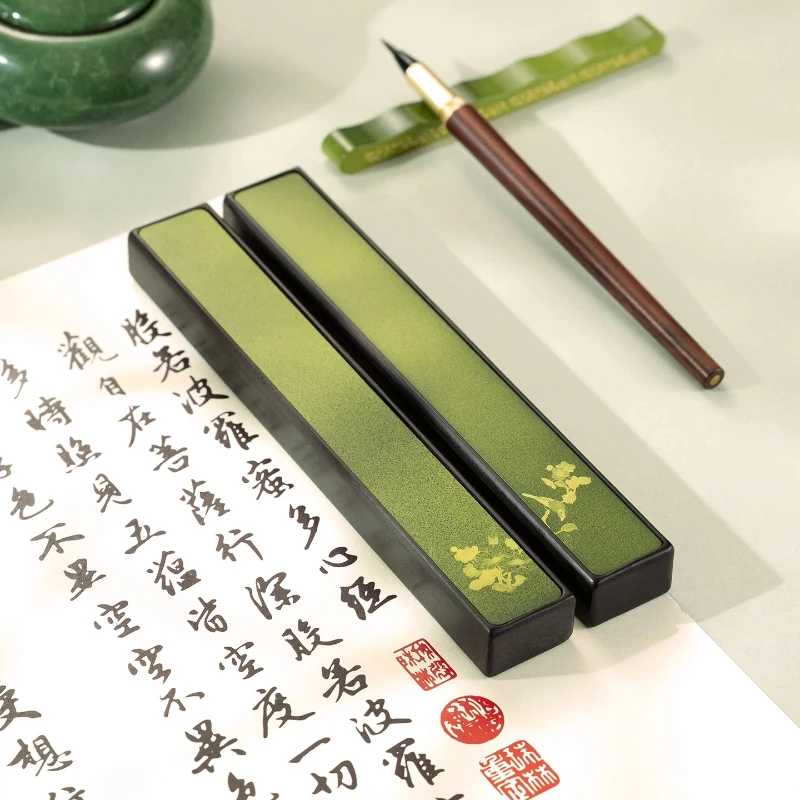 般若波羅蜜多心經
觀自在菩薩行深般若波羅
多時照見五蘊皆空度一切
色不異空空不異色
想